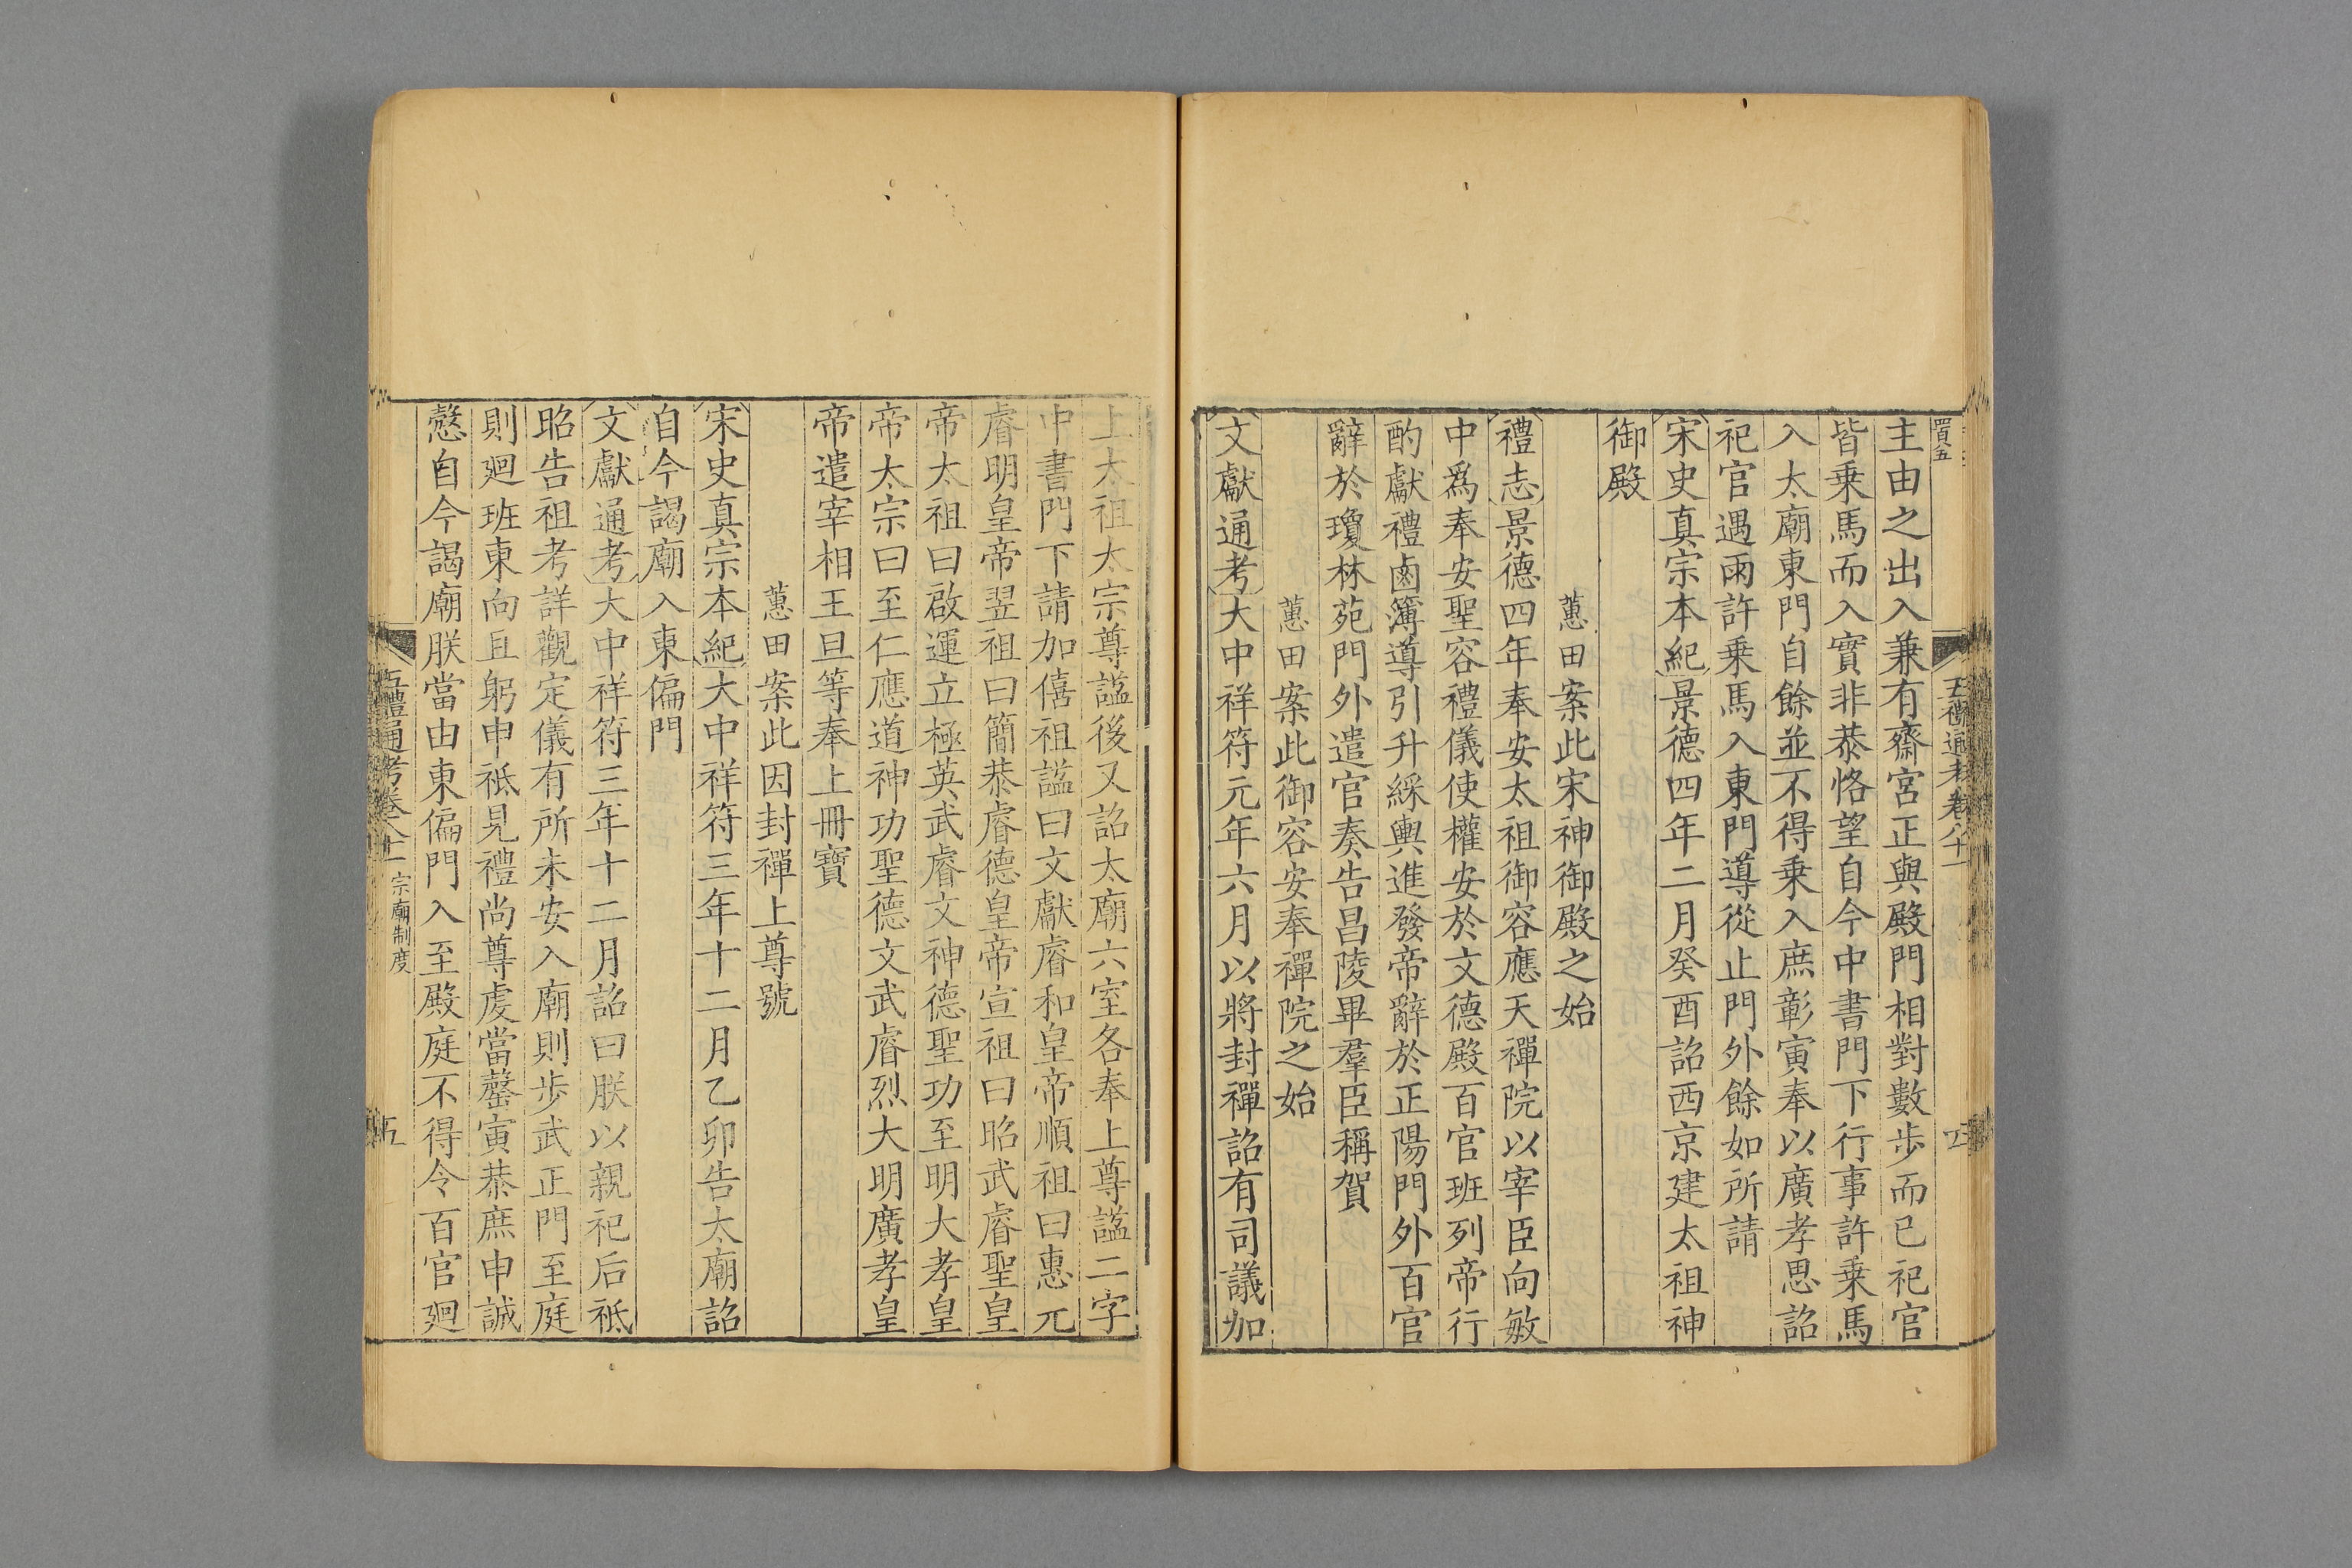 五禮通考卷八十一
主由之出入兼有齋宮正與殿門相對數步而已祀官
皆乗馬而入實非恭恪望自今中書門下行事許乗馬
入太廟東門自餘並不得乗入庶彰寅奉以廣孝思詔
祀官遇雨許乗馬入東門導從止門外餘如所請
宋史真宗本紀景德四年二月癸酉詔西京建太祖神
御殿
蕙田案此宋神御殿之始
禮志景德四年奉安太祖御容應天禪院以宰臣向敏
中爲奉安聖容禮儀使權安於文德殿百官班列帝行
酌獻禮鹵簿導引升綵輿進發帝辭於正陽門外百官
辭於瓊林苑門外遣官奏告昌陵畢羣臣稱賀
蕙田案此御容安奉禪院之始
文獻通考大中祥符元年六月以將封禪詔有司議加
上太祖太宗尊謚後又詔太廟六室各奉上尊謚二字
中書門下請加僖祖謚曰文獻睿和皇帝順祖曰惠元
睿明皇帝翌祖曰簡恭睿德皇帝宣祖曰昭武睿聖皇
帝太祖曰啟運立極英武睿文神德聖功至明大孝皇
帝太宗曰至仁應道神功聖德文武睿烈大明廣孝皇
帝遣宰相王旦等奉上冊寶
蕙田案此因封禪上尊號
宋史真宗本紀大中祥符三年十二月乙卯告太廟詔
自今謁廟入東偏門
文獻通考大中祥符三年十二月詔曰朕以親祀后祗
昭告祖考詳觀定儀有所未安入廟則步武正門至庭
則廻班東向且躬申祗見禮尚尊虔當罄寅恭庶申誠
慤自今謁廟朕當由東偏門入至殿庭不得令百官廻
五禮通考卷八十一 宗廟制度
五